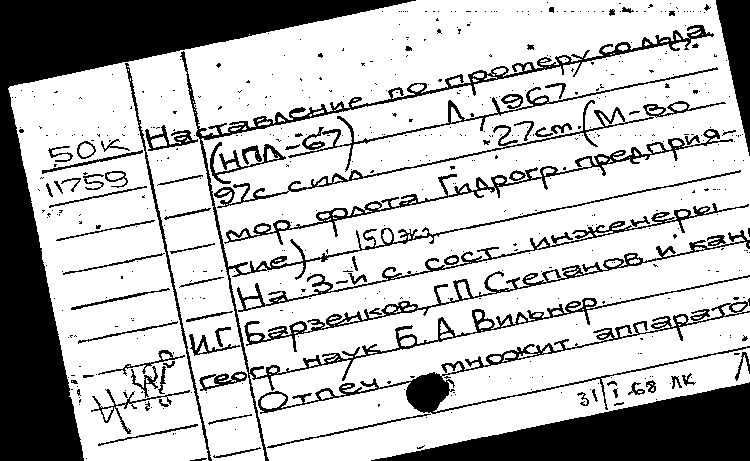 Наставление по промеру со льда
(НПЛ-67). Л., 1967.
50К
11759
97с с илл. 27cm. (М-во
мор. флота. Гидрогр. предприя-
тие). 150 экз.
На 3-й с. сост.: инженеры
И.Г. Барзенков, Г.П. Степанов и канд
геогр. наук Б. А. Вильнер.
Отпеч. множит. аппарато
31/I-68 ЛК